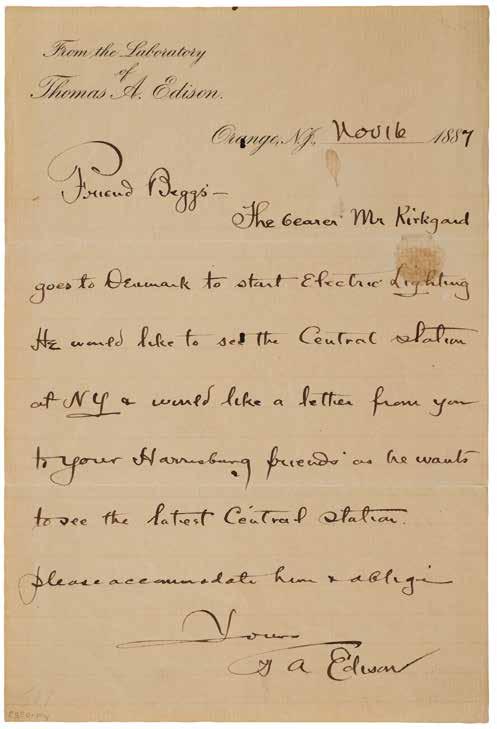 From the Laboratory
of
Thomas A. Edison.
Orange, N.J., Nov 16 1887
Friend Beggs—
The bearer Mr Kirkgard
goes to Denmark to start Electric Lighting
He would like to see the Central station
at NY & would like a letter from you
to your Harrisburg friends as he wants
to see the latest Central station.
please accommodate him & oblige
Yours
T A Edison